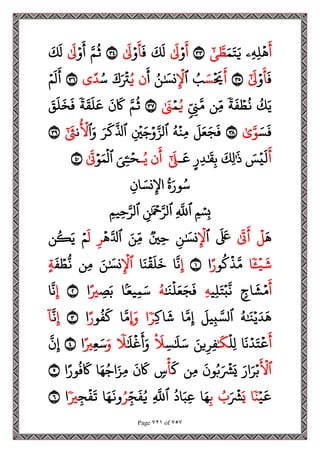 أَهْلِهِۦ يَتَمَطَّىٰٓ ٣٣ أَوْلَىٰ لَكَ فَأَوْلَىٰ ٣٤ ثُمَّ أَوْلَىٰ لَكَ
فَأَوْلَىٰٓ ٣٥ أَيَحْسَبُ ٱلْإِنسَـٰنُ أَن يُتْرَكَ سُدًى ٣٦ أَلَمْ
يَكُ نُطْفَةً مِّن مَّنِىٍّ يُمْنَىٰ ٣٧ ثُمَّ كَانَ عَلَقَةً فَخَلَقَ
فَسَوَّىٰ ٣٨ فَجَعَلَ مِنْهُ ٱلزَّوْجَيْنِ ٱلذَّكَرَ وَٱلْأُنثَىٰٓ ٣٩
أَلَيْسَ ذَٰلِكَ بِقَـٰدِرٍ عَلَىٰٓ أَن يُحْـِۧىَ ٱلْمَوْتَىٰ ٤٠
سُورَةُ الإِنسَان
بِسْمِ ٱللَّهِ ٱلرَّحْمَـٰنِ ٱلرَّحِيمِ
هَلْ أَتَىٰ عَلَى ٱلْإِنسَـٰنِ حِينٌ مِّنَ ٱلدَّهْرِ لَمْ يَكُن
شَيْـًٔا مَّذْكُورًا ١ إِنَّا خَلَقْنَا ٱلْإِنسَـٰنَ مِن نُّطْفَةٍ
أَمْشَاجٍ نَّبْتَلِيهِ فَجَعَلْنَـٰهُ سَمِيعًۢا بَصِيرًا ٢ إِنَّا
هَدَيْنَـٰهُ ٱلسَّبِيلَ إِمَّا شَاكِرًا وَإِمَّا كَفُورًا ٣ إِنَّآ
أَعْتَدْنَا لِلْكَـٰفِرِينَ سَلَـٰسِلَا۟ وَأَغْلَـٰلًا وَسَعِيرًا ٤ إِنَّ
ٱلْأَبْرَارَ يَشْرَبُونَ مِن كَأْسٍ كَانَ مِزَاجُهَا كَافُورًا ٥
عَيْنًا يَشْرَبُ بِهَا عِبَادُ ٱللَّهِ يُفَجِّرُونَهَا تَفْجِيرًا ٦
Page ٧٢١ of ٧٥٧